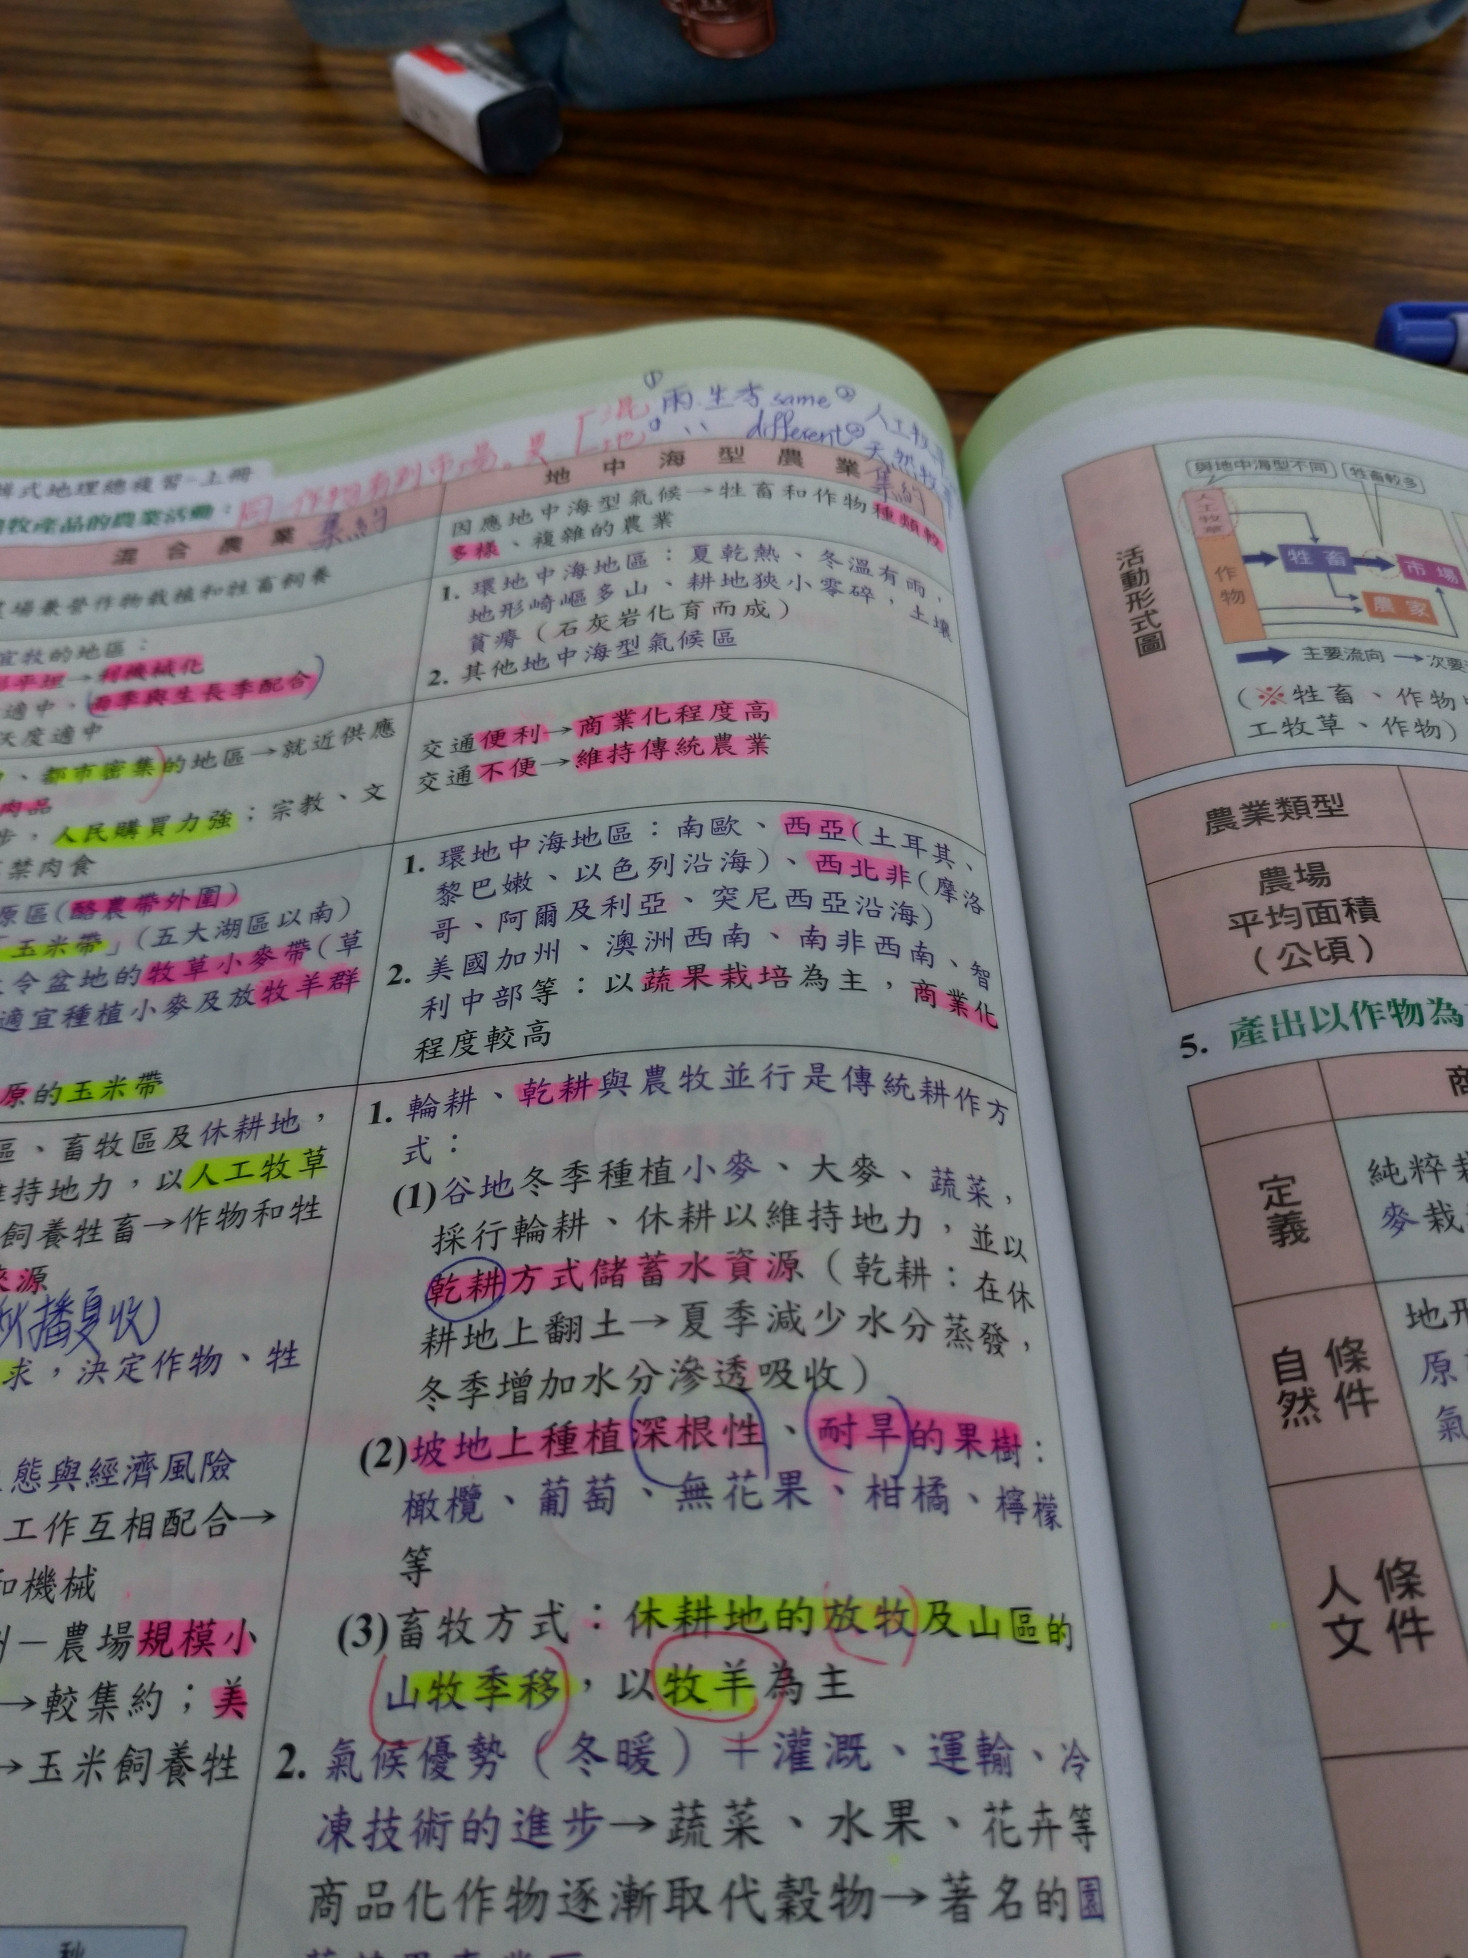 式地理總複習-上冊
牧產品的農業活動：
同 作物有到市場
異
混
地
雨.生季 same
different
人工牧草
天然牧
混合農業 集約
場兼營作物栽植和牲畜飼養
宜牧的地區：
平坦→利機械化
適中，雨季與生長季配合
度適中
、都市密集的地區→就近供應
肉品
步，人民購買力強；宗教、文
禁肉食
原區(酪農帶外圍)
玉米帶」(五大湖區以南)
令盆地的牧草小麥帶(草
適宜種植小麥及放牧羊群
原的玉米帶
區、畜牧區及休耕地，
維持地力，以人工牧草
飼養牲畜→作物和牲
來源
秋播夏收)
求，決定作物、牲
態與經濟風險
工作互相配合→
和機械
－農場規模小
→較集約；美
→玉米飼養牲
秋
地中海型農業 集約
因應地中海型氣候→牲畜和作物種類較
多樣、複雜的農業
1. 環地中海地區：夏乾熱、冬溫有雨，
地形崎嶇多山、耕地狹小零碎，土壤
貧瘠（石灰岩化育而成）
2. 其他地中海型氣候區
交通便利→商業化程度高
交通不便→維持傳統農業
1. 環地中海地區：南歐、西亞(土耳其、
黎巴嫩、以色列沿海)、西北非(摩洛
哥、阿爾及利亞、突尼西亞沿海)
2. 美國加州、澳洲西南、南非西南、智
利中部等：以蔬果栽培為主，商業化
程度較高
1. 輪耕、乾耕與農牧並行是傳統耕作方
式：
(1)谷地冬季種植小麥、大麥、蔬菜，
採行輪耕、休耕以維持地力，並以
乾耕方式儲蓄水資源（乾耕：在休
耕地上翻土→夏季減少水分蒸發，
冬季增加水分滲透吸收）
(2)坡地上種植深根性、耐旱的果樹：
橄欖、葡萄、無花果、柑橘、檸檬
等
(3)畜牧方式：休耕地的放牧及山區的
山牧季移，以牧羊為主
2. 氣候優勢（冬暖）＋灌溉、運輸、冷
凍技術的進步→蔬菜、水果、花卉等
商品化作物逐漸取代穀物→著名的園
活動形式圖
與地中海型不同
牲畜較多
人工牧草
作物
牲畜
市場
農家
主要流向 →次要
(※牲畜、作物
工牧草、作物)
農業類型
農場
平均面積
（公頃）
5. 產出以作物為
商
定義
純粹栽
麥栽
自然條件
地形
原
氣
人文條件